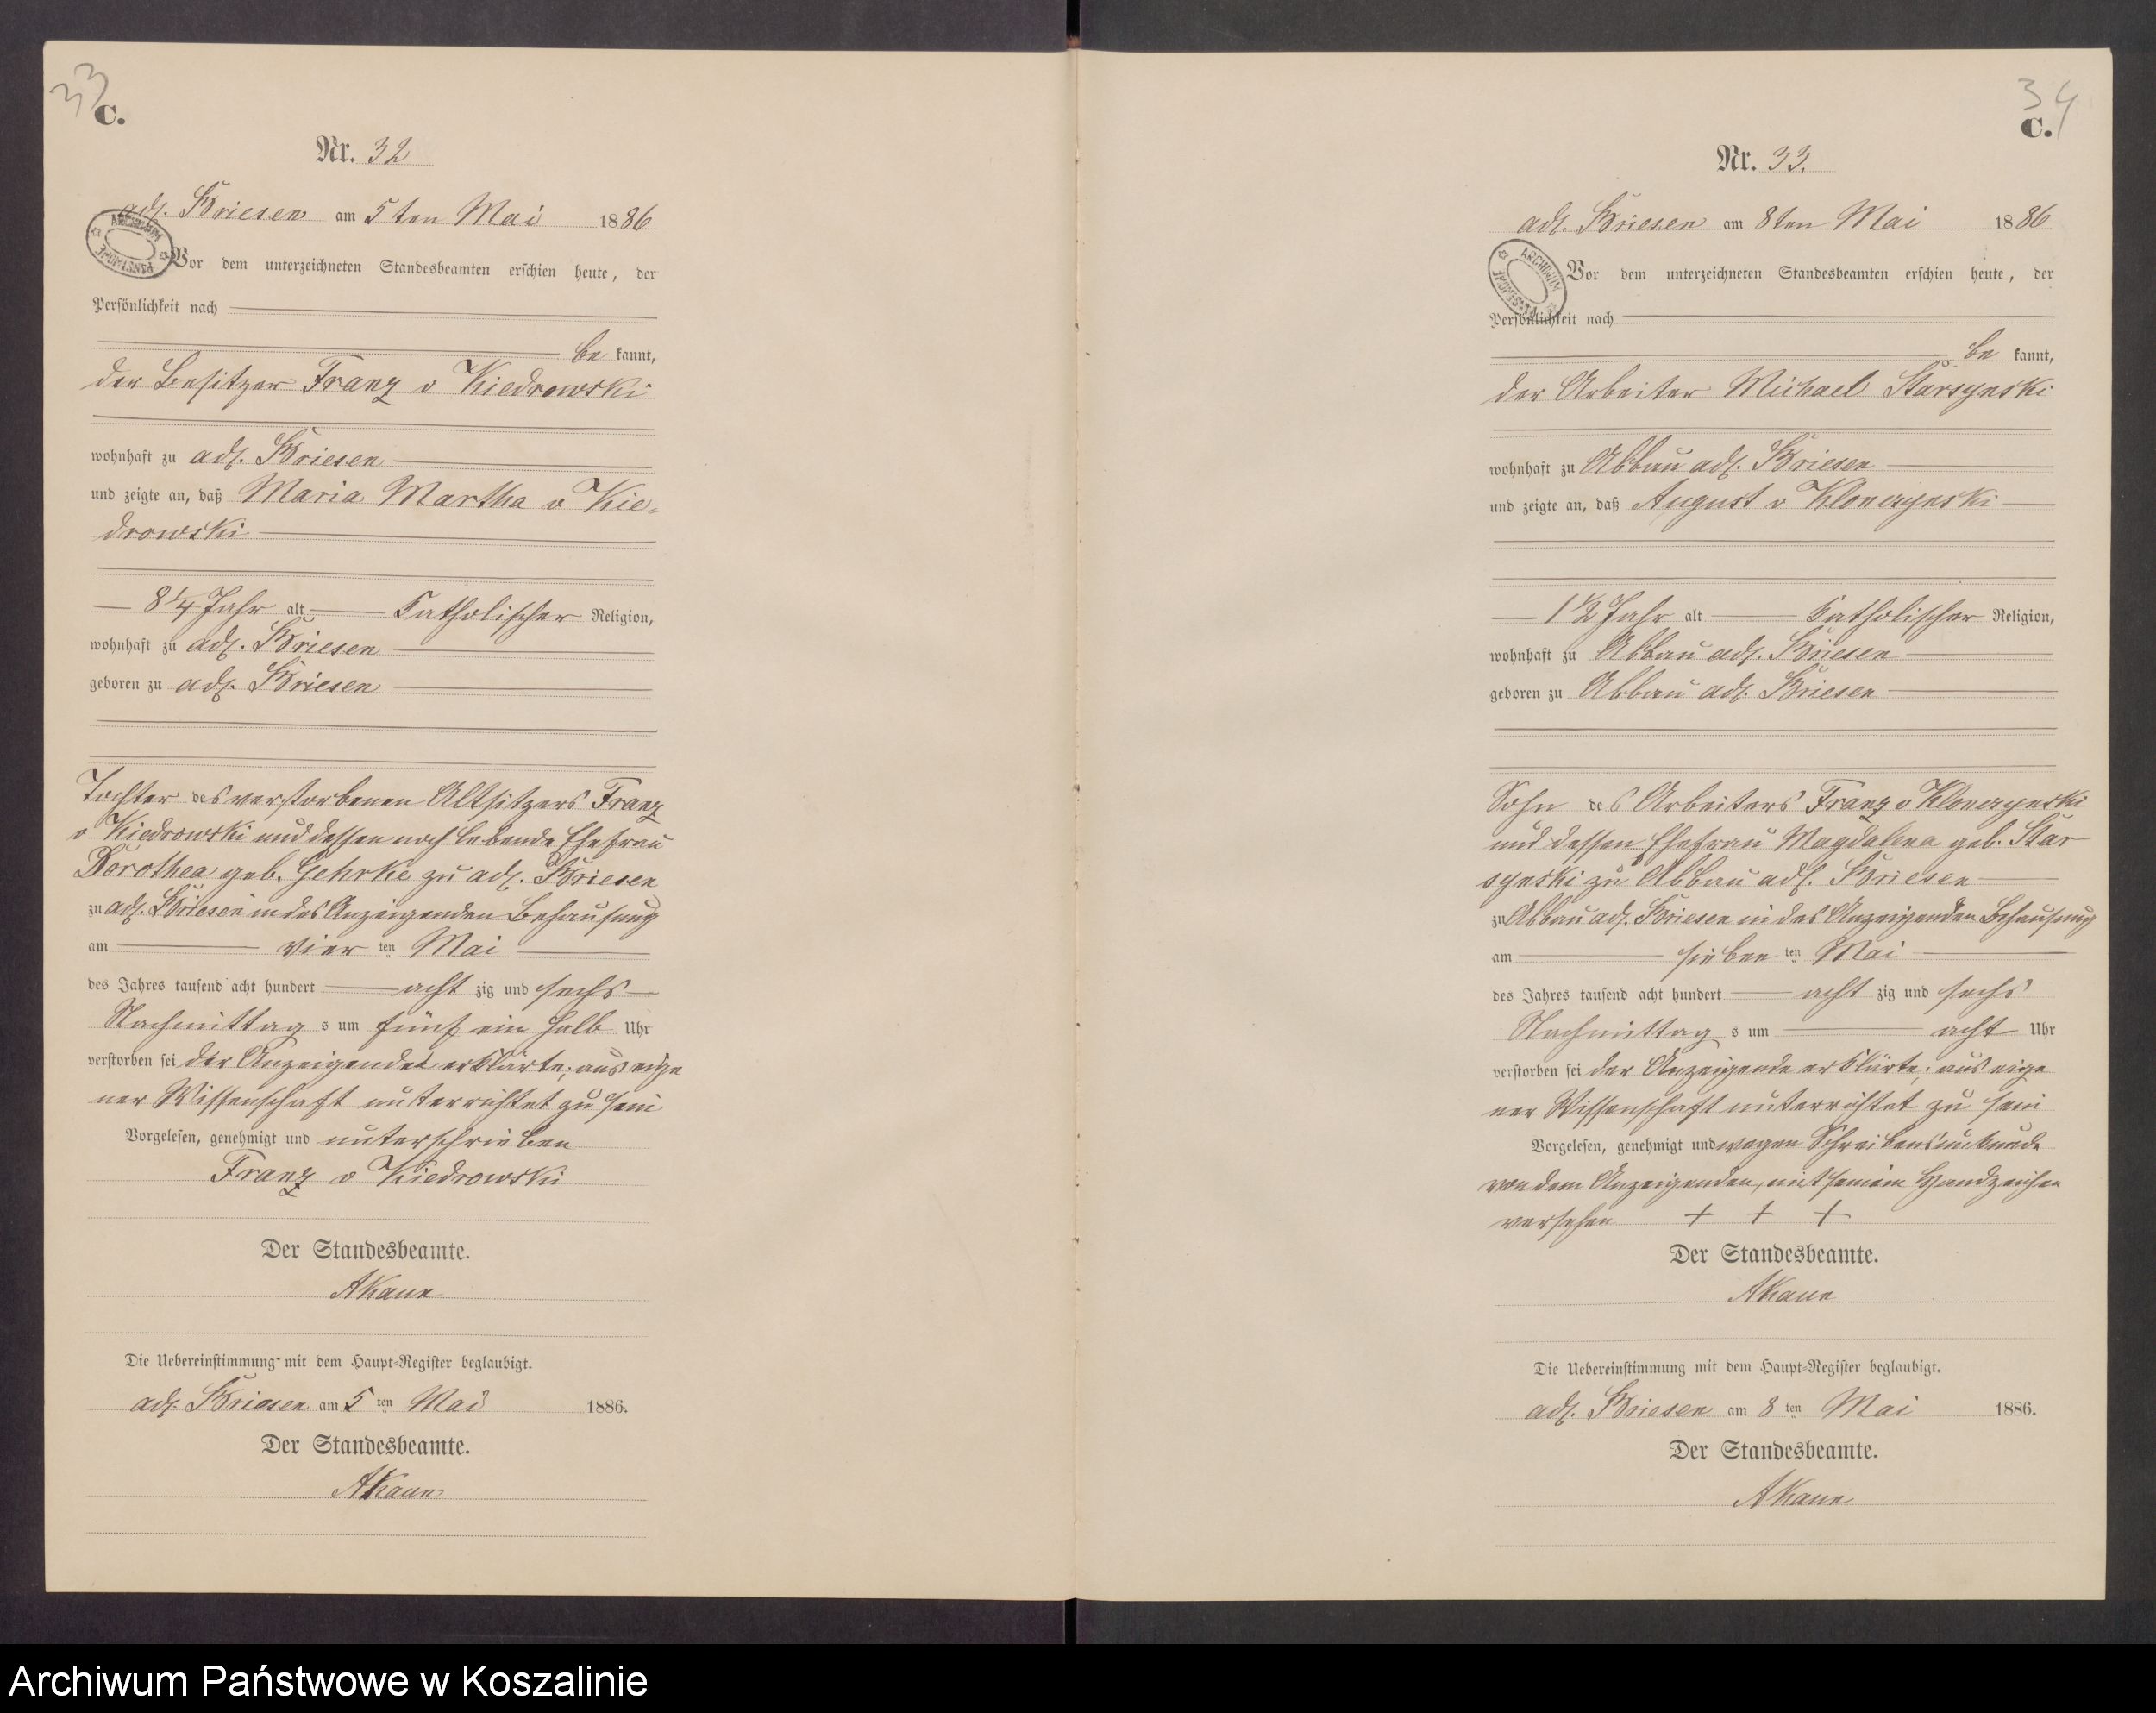 33
C.
Nr. 32
adl. Briesen am 5ten Mai 1886
Vor dem unterzeichneten Standesbeamten erschien heute, der
Persönlichkeit nach
be kannt,
der Besitzer Franz v Kiedrowski
wohnhaft zu adl. Briesen
und zeigte an, daß Maria Martha v Kie-
drowski
8 1/4 Jahr alt Katholischer Religion,
wohnhaft zu adl. Briesen
geboren zu adl. Briesen
Tochter des verstorbenen Altsitzers Franz
v Kiedrowski und dessen noch lebende Ehefrau
Dorothea geb. Gehrke zu adl. Briesen
zu adl. Briesen in des Anzeigenden Behausung
am vier ten Mai
des Jahres tausend acht hundert acht zig und sechs
Nachmittag s um fünf ein halb Uhr
verstorben sei der Anzeigende erklärte; aus eige
ner Wissenschaft unterrichtet zu sein
Vorgelesen, genehmigt und unterschrieben
Franz v Kiedrowski
Der Standesbeamte.
AKaun
Die Uebereinstimmung mit dem Haupt-Register beglaubigt.
adl. Briesen am 5 ten Mai 1886.
Der Standesbeamte.
AKaun
34
C.
Nr. 33.
adl. Briesen am 8ten Mai 1886
ARCHIWUM
Vor dem unterzeichneten Standesbeamten erschien heute, der
Persönlichkeit nach
be kannt,
der Arbeiter Michael Starsynski
wohnhaft zu Abbau adl. Briesen
und zeigte an, daß August v Klonczynski
1 1/2 Jahr alt Katholischer Religion,
wohnhaft zu Abbau adl. Briesen
geboren zu Abbau adl. Briesen
Sohn des Arbeiters Franz v Klonczynski
und dessen Ehefrau Magdalena geb. Star
synski zu Abbau adl. Briesen
zu Abbau adl. Briesen in des Anzeigenden Behausung
am sieben ten Mai
des Jahres tausend acht hundert acht zig und sechs
Nachmittag s um acht Uhr
verstorben sei der Anzeigende erklärte; aus eige
ner Wissenschaft unterrichtet zu sein
Vorgelesen, genehmigt und wegen Schreibensunkunde
von dem Anzeigenden, mit seinem Handzeichen
versehen + + +
Der Standesbeamte.
AKaun
Die Uebereinstimmung mit dem Haupt-Register beglaubigt.
adl. Briesen am 8 ten Mai 1886.
Der Standesbeamte.
AKaun
Archiwum Państwowe w Koszalinie